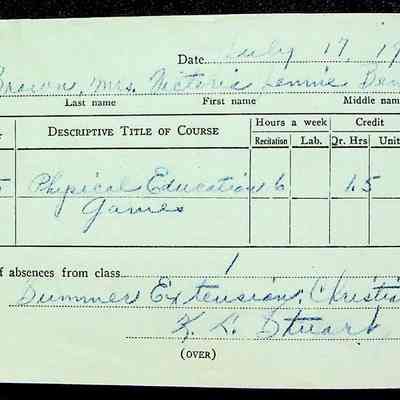 Date July 17, 19
Brown, Mrs. Victoria Lennie
Last name First name Middle nam
DESCRIPTIVE TITLE OF COURSE Hours a week Credit
Recitation Lab. Qr. Hrs Unit
5 Physical Education 6 1.5
Games
f absences from class 1
Summer Extension: Christia
Stuart
(OVER)